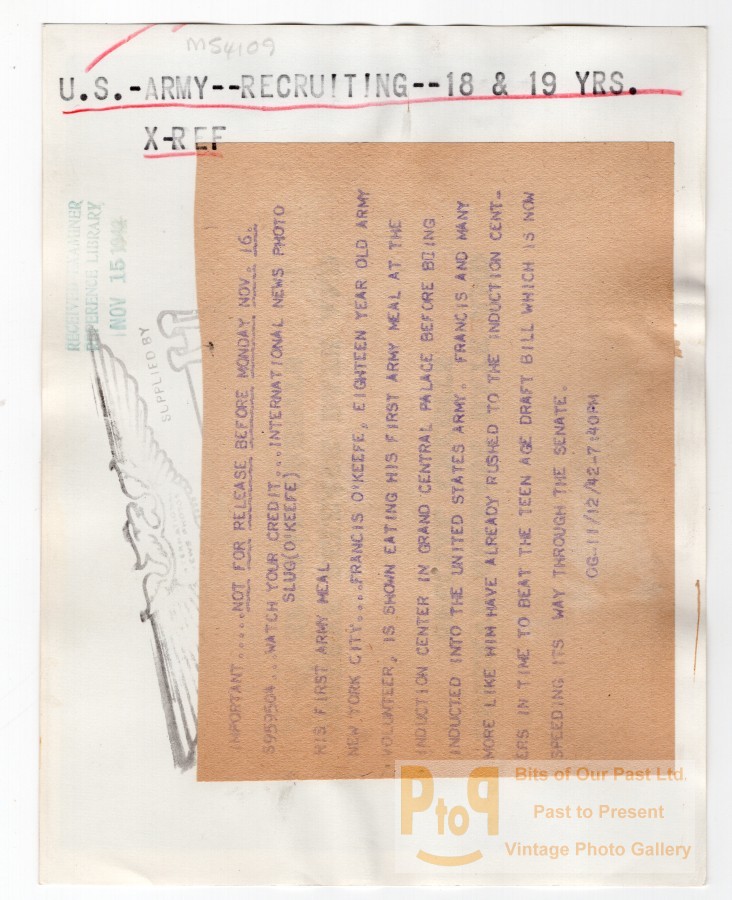 MS4109
U.S.-ARMY--RECRUITING--18 & 19 YRS.
X-REF
RECEIVED EXAMINER
REFERENCE LIBRARY
NOV 15 1942
SUPPLIED BY
IMPORTANT.....NOT FOR RELEASE BEFORE MONDAY NOV. 16.
S959504...WATCH YOUR CREDIT...INTERNATIONAL NEWS PHOTO
SLUG(O'KEEFE)
HIS FIRST ARMY MEAL
NEW YORK CITY....FRANCIS O'KEEFE, EIGHTEEN YEAR OLD ARMY
VOLUNTEER, IS SHOWN EATING HIS FIRST ARMY MEAL AT THE
INDUCTION CENTER IN GRAND CENTRAL PALACE BEFORE BEING
INDUCTED INTO THE UNITED STATES ARMY. FRANCIS AND MANY
MORE LIKE HIM HAVE ALREADY RUSHED TO THE INDUCTION CENT-
ERS IN TIME TO BEAT THE TEEN AGE DRAFT BILL WHICH IS NOW
SPEEDING ITS WAY THROUGH THE SENATE.
OG-11/12/42-7:40PM
PtoP
Bits of Our Past Ltd.
Past to Present
Vintage Photo Gallery